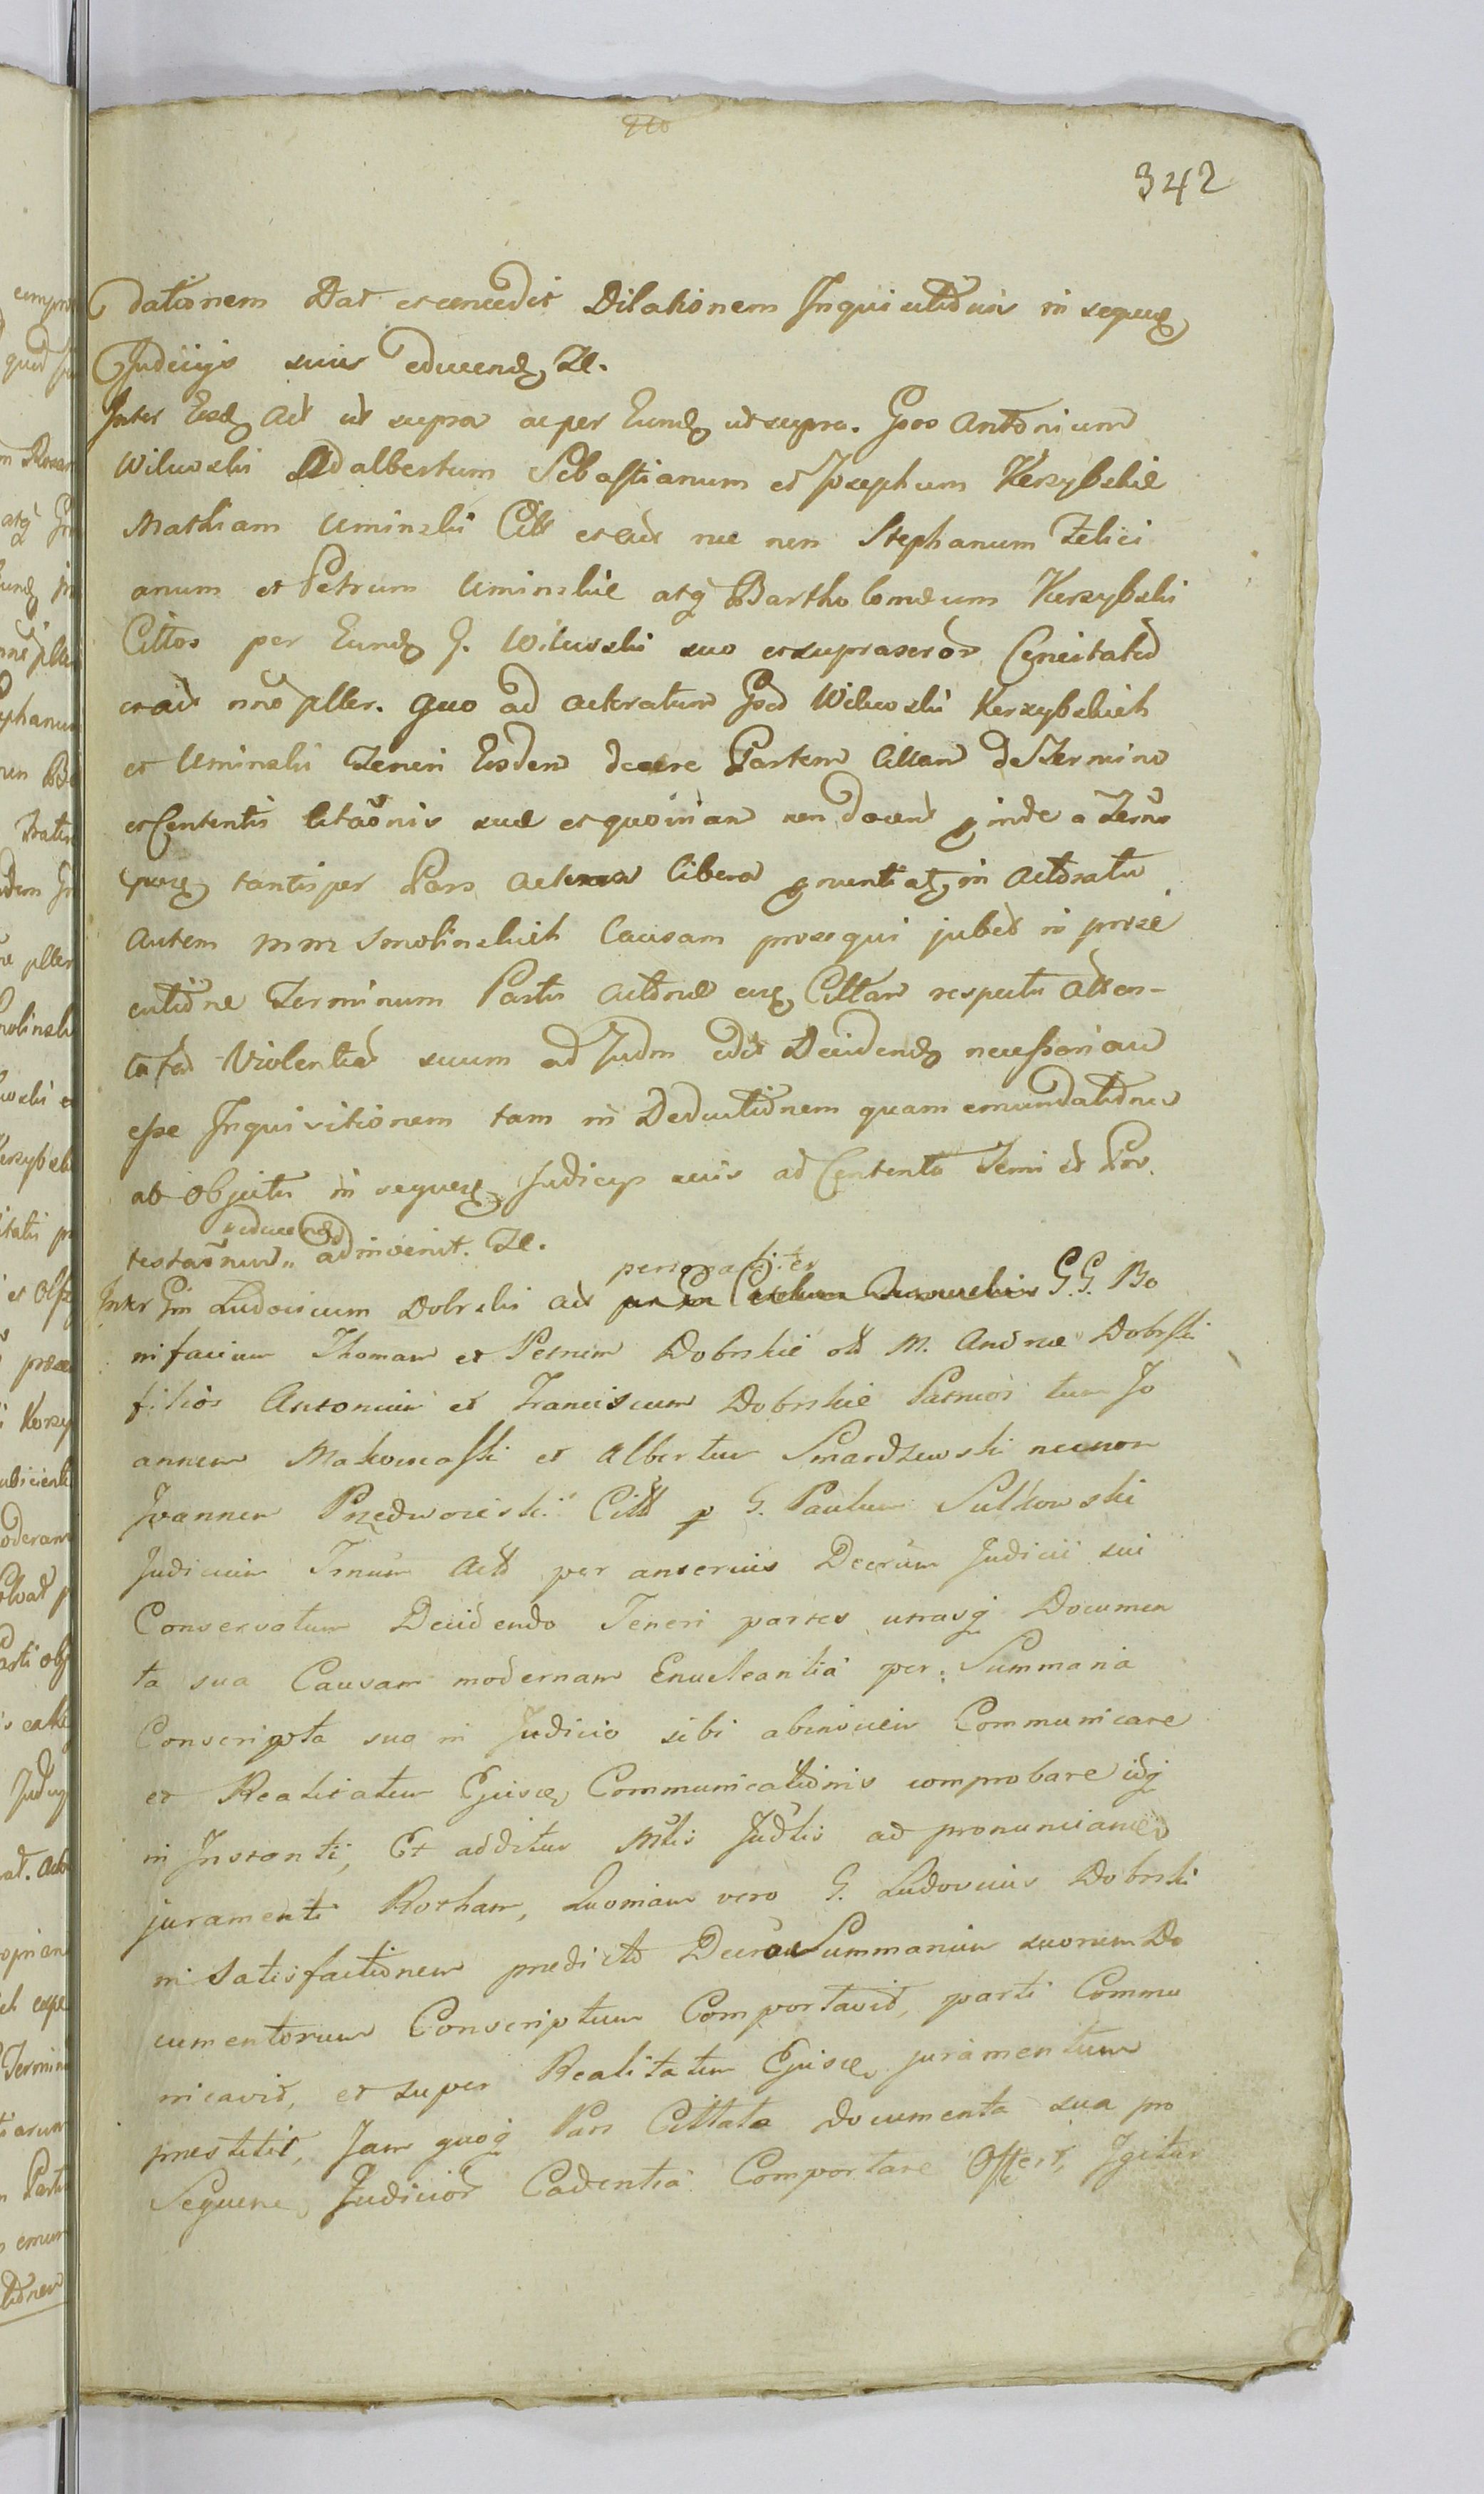 342
dationem Dat et concedit Dilationem Inquisitionis in sequen
Judicijs suis educend Ze.
Inter Eosd Act ut supra ac per Eund ut supra. Gsos Antonium
Wilwoski Adalbertum Sebastianum et Josephum Kerzybskie
Mathiam Uminski Citt et Act nec non Stephanum Felici
anum et Petrum Uminskie atq Bartholomæum Kerzybski
Cittos per Eund G. Wilwoski suo et suprascr
et act nno pller. Quo ad actoratum Wilwoski Kerzybskich
et Uminski Teneri Eosdem docere Partem Cittam de Termino
et Contentis Citaonis suæ et quoniam non docent inde a Termo
tantisper Pars Actorea libera in Actoratu
autem mm Smolinskich Causam prosequi jubet in prose
cutione Terminum Partis Actoreæ Cittam respectu atten-
tatar Violentiar suum ad Judm Decidend necessariam
esse Inquisitionem tam in Deductionem quam emundationem
ab objectis in sequen Judicijs suis ad Contenta Termi et Pro
educend
testaonum adinvenit. Ze.
personaliter
Inter Gm Ludovicum Dobrski act G.G. Bo
nifacium Thomam et Petrum Dobrskie M. Andreæ Dobrski
filios Antonium et Franciscum Dobrskie Patruos tum Jo
annem et Albertum Smardzewski necnon
Joannem Przedworski Citt p G. Paulum Sulkowski
Judicium Tnum Act per anterius Decrum Judicii sui
Conservatum Decidendo Teneri partes utrasq Documen
ta sua Causam modernam Enucleantia per Summaria
Conscripta suo in Judicio sibi abinvicem Communicare
et Realitatem Ejusd Communicationis comprobare idq
in Instanti, Et additur Mtis Judtis ad pronunciand
juramenti Rotham, Quoniam vero G. Ludovicus Dobrski
in satisfactionem predicto Decro Summarium suorum Do
cumentorum Conscriptum Comportavit, parti Commu
nicavit, et super Realitatem Ejusd juramentum
prestitit, Jam quoq Pars Cittata documenta sua pro
Sequen Judicior Cadentia Comportare Offert, Igitur